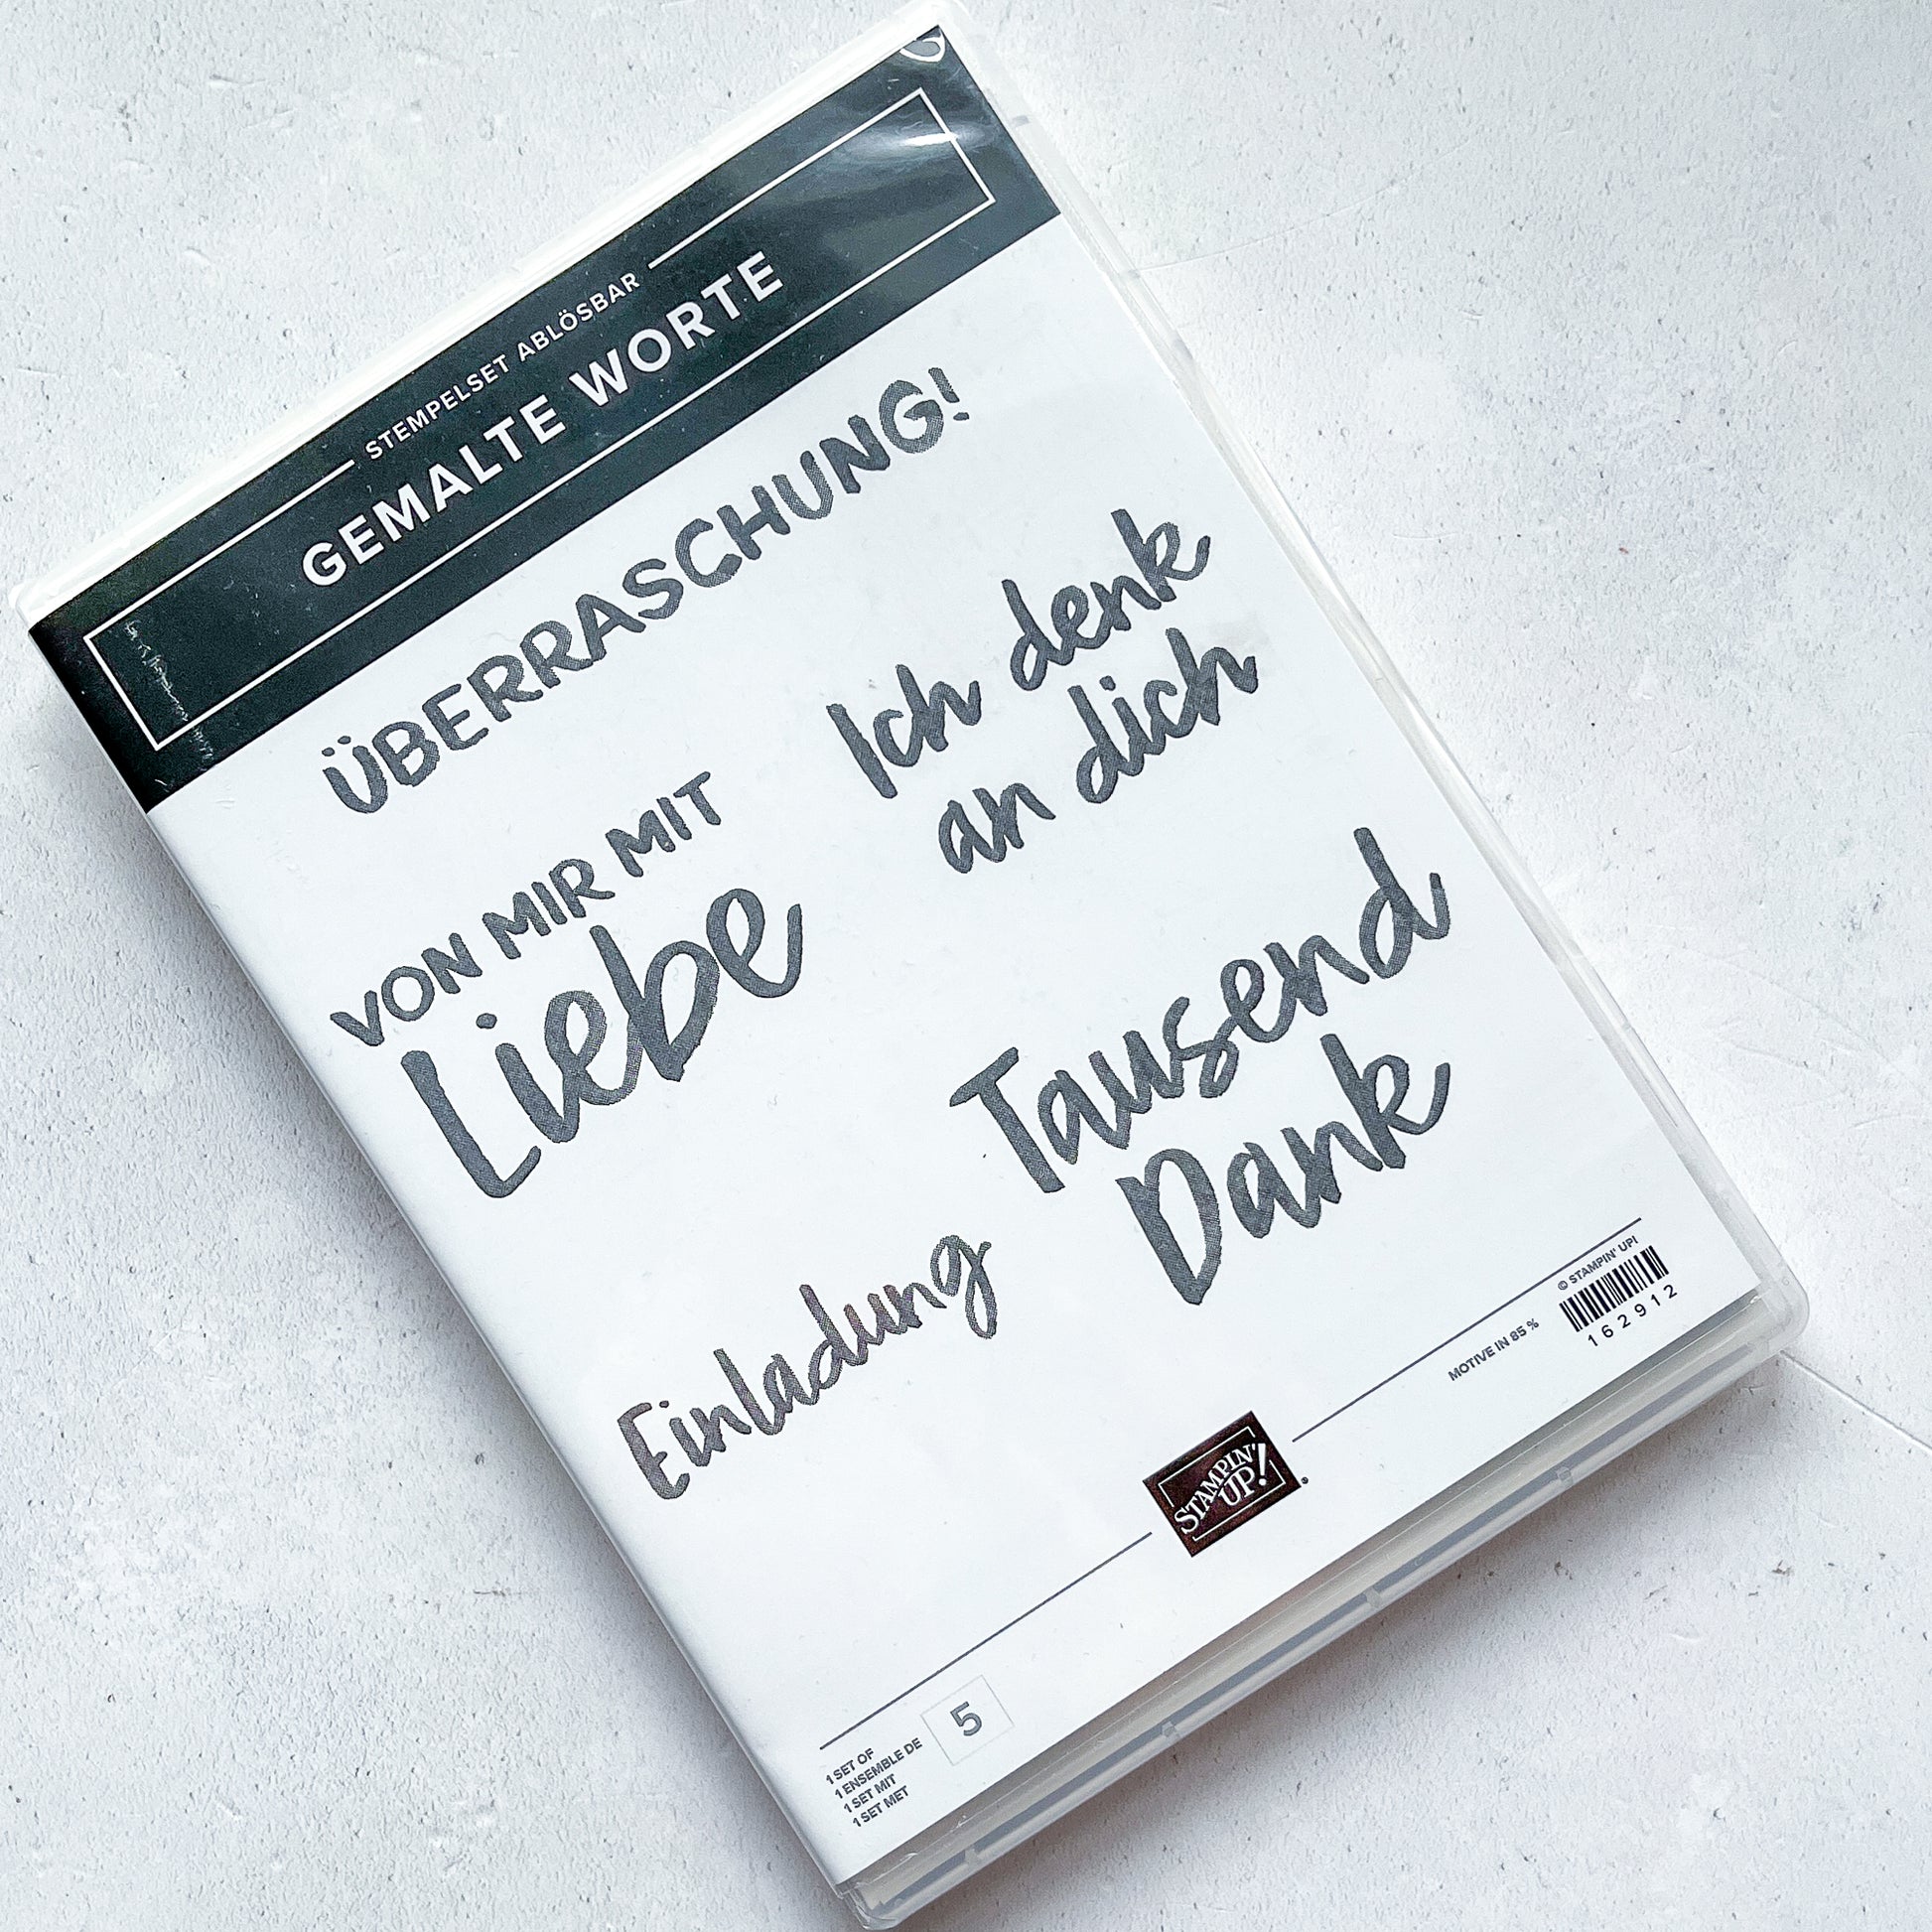 STEMPELSET ABLÖSBAR
GEMALTE WORTE
ÜBERRASCHUNG!
Ich denk
an dich
VON MIR MIT
Liebe
Tausend
Dank
Einladung
© STAMPIN' UP!
162912
MOTIVE IN 85 %
STAMPIN'
UP!
1 SET OF
1 ENSEMBLE DE
1 SET MIT
1 SET MET
5